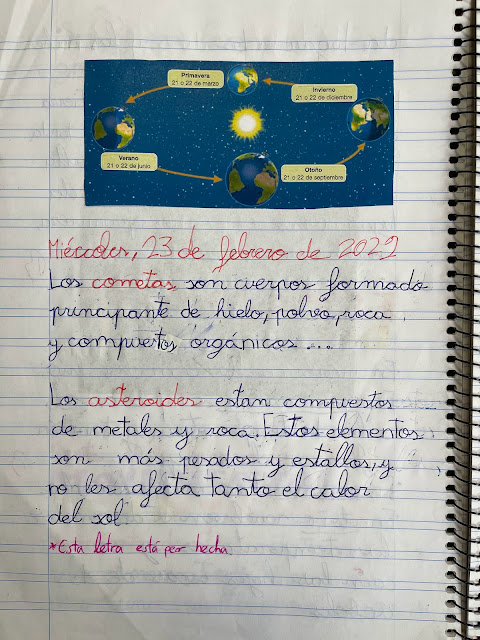 Primavera
21 o 22 de marzo
Invierno
21 o 22 de diciembre
Verano
21 o 22 de junio
Otoño
21 o 22 de septiembre
Miércoles, 23 de febrero de 2022
Los cometas son cuerpos formado
principante de hielo, polvo, roca
y compuertos orgánicos ...
Los asteroides estan compuestos
de metales y roca. Estos elementos
son más pesados y estallos, y
no les afecta tanto el calor
del sol
*Esta letra está peor hecha.